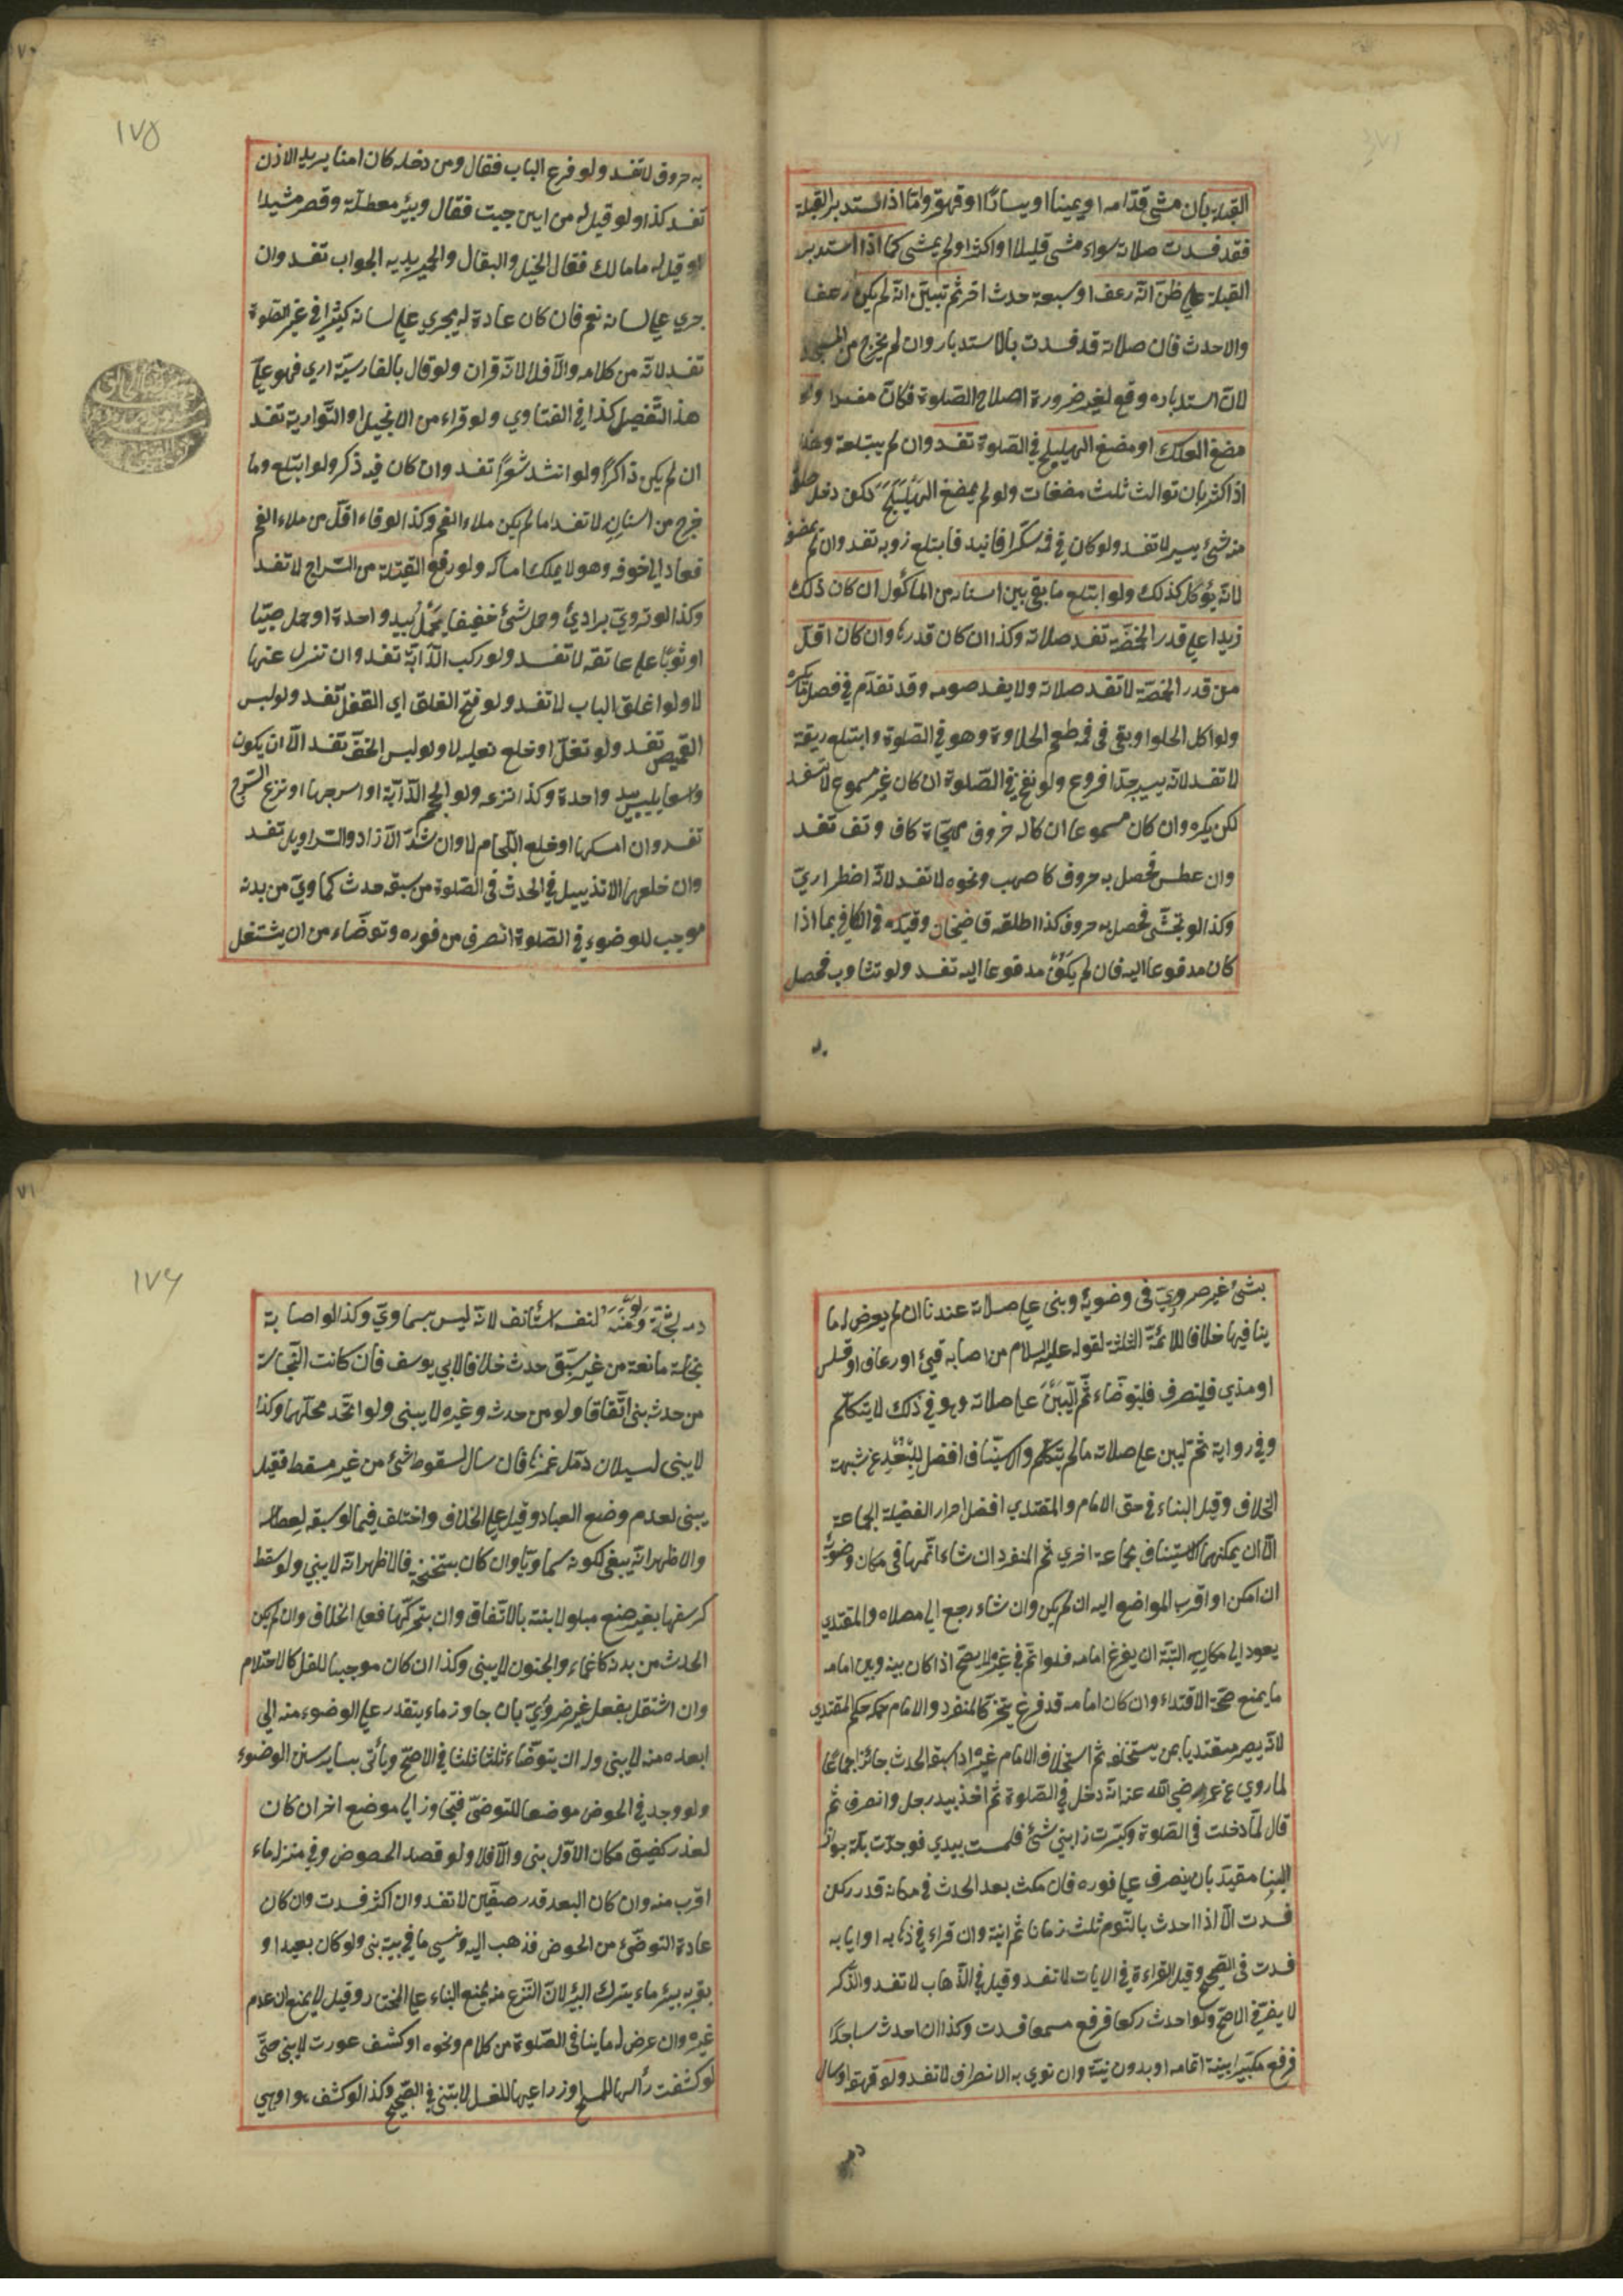 القبلة بان مشى قدامه او يمينا او يسارا او قهقرة واما اذا استدبر القبلة
فقد فسدت صلاته سواء مشى قليلا او اكثر او لم يمشى كما اذا استدبر
القبلة على ظن انه رعف او سبعه حدث اخر ثم تبين انه لم يكن رعف
والاحدث فان صلاته قد فسدت بالاستدبار وان لم يخرج من المسجد
لان استدباره وقع لغير ضرورة اصلاح الصلوة فكان مفسدا ولو
مضغ العلك او مضغ الهليلج في الصلوة تفسد وان لم يبتلعه وهذا
اذا كثر بان توالت ثلث مضغات ولو لم يمضغ الهليلج لكن دخل حلقه
منه شئ يسير لا تفسد ولو كان في فمه سكر افانيد فابتلع ذوبه تفسد وان لم يمضغ
لانه يؤكل كذلك ولو ابتلع ما بقى بين اسنانه من الماكول ان كان ذلك
زيدا على قدر الحمصة تفسد صلاته وكذا ان كان قدرها وان كان اقل
من قدر الحمصة لا تفسد صلاته ولا يفسد صومه وقد تقدم في فصل
ولو اكل الحلوا وبقى في فمه طعم الحلاوة وهو في الصلوة وابتلع ريقه
لا تفسد لانه يسير جدا فروع ولو نفخ في الصلوة ان كان غير مسموع لا تفسد
لكن يكره وان كان مسموعا ان كان له حروف مهجاة كاف وتف تفسد
وان عطس فحصل به حروف كاصهب ونحوه لا تفسد لانه اضطراري
وكذا لو تجشى فحصل به حروف كذا اطلقه قاضيخان وقيده في الكافي بما اذا
كان مدفوعا اليه فان لم يكن مدفوعا اليه تفسد ولو تثاوب فحصل
به
١٧٥
به حروف لا تفسد ولو قرع الباب فقال ومن دخله كان امنا يريد الاذن
تفسد كذا ولو قيل له من اين جيت فقال وبئر معطلة وقصر مشيدا
او قيل له ما مالك فقال الخيل والبغال والحمير يريد به الجواب تفسد وان
جري على لسانه نعم فان كان عادة له يجري على لسانه كثيرا في غير الصلوة
تفسد لانه من كلامه والا فلا لانه قران ولو قال بالفارسية اري فهو على
هذا التفصيل كذا في الفتاوي ولو قراء من الانجيل او التوارية تفسد
ان لم يكن ذاكرا ولو انشد شعرا تفسد وان كان فيه ذكر ولو ابتلع وما
خرج من اسنانه لا تفسد ما لم يكن ملاء الفم وكذا لو قاء اقل من ملاء الفم
فعاد الى جوفه وهو لا يملك امساكه ولو رفع الفتيلة من السراج لا تفسد
وكذا لو تروى برادئ وحمل شئ خفيفا يحمل بيد واحدة او حمل صبيا
او ثوبا على عاتقه لا تفسد ولو ركب الدابة تفسد وان تنزل عنها
لا ولو اغلق الباب لا تفسد ولو فتح الغلق اي القفل تفسد ولو لبس
القميص تفسد ولو تنعل او خلع نعليه لا ولو لبس الخف تفسد الا ان يكون
واسعا يلبس بيد واحدة وكذا نزعه ولو الجم الدابة او اسرجها او نزع السرج
تفسد وان امسكها او خلع اللجام لا وان شد الازار والسراويل تفسد
وان خلعها لا تذييل في الحدث في الصلوة من سبقه حدث سماوي من بدنه
موجب للوضوء في الصلوة انصرف من فوره وتوضاء من ان يشتغل
بشئ غير ضروري في وضوئه وبنى على صلاته عندنا ان لم يعرض له ما
ينافيها خلافا للائمة الثلثة لقوله عليه السلام من اصابه قئ او رعاف او قلس
او مذي فلينصرف فليتوضاء ثم ليبن على صلاته وهو في ذلك لا يتكلم
وفي رواية ثم ليبن على صلاته ما لم يتكلم والاستيناف افضل للبعد عن شبهة
الخلاف وقيل البناء في حق الامام والمقتدي افضل احرار الفضيلة الجماعة
الا ان يمكنهما الاستيناف بجماعة اخري ثم المنفرد ان شاء اتمها في مكان وضوئه
ان امكن او اقرب المواضع اليه ان لم يكن وان شاء رجع الى مصلاه والمقتدي
يعود الى مكانه البتة ان يفرغ امامه فلو اتم في غيره لا يصح اذا كان بينه وبين امامه
ما يمنع صحة الاقتداء وان كان امامه قد فرغ يتخير كالمنفرد والامام حكمه حكم المقتدي
لانه يصير مقتديا بمن يستخلفه ثم استخلاف الامام غيره اذا سبقه الحدث جائز اجماعا
لما روي عن عمر رضي الله عنه انه دخل في الصلوة ثم اخذ بيد رجل وانصرف ثم
قال لما دخلت في الصلوة وكبرت رابني شئ فلمست بيدي فوجدت بلة جواز
البنا مقيد بان ينصرف على فوره فان مكث بعد الحدث في مكانه قدر ركن
فسدت الا اذا احدث بالنوم ثلث زمانا ثم انبته وان قراء في ذهابه او ايابه
فسدت في الصحيح وقيل القراءة في الايات لا تفسد وقيل في الذهاب لا تفسد والذكر
لا يفر في الاصح ولو احدث ركعا فرفع مسمعا فسدت وكذا ان احدث ساجدا
فرفع مكبرا بنية اتمامه او بدون نية وان نوي به الانصراف لا تفسد ولو قهقه او سال
١٧٦
دم لشجة لنفسه استأنف لانه ليس بسماوي وكذا لو اصابه
نجاسة مانعة من غير سبق حدث خلافا لابي يوسف فان كانت النجاسة
من حدثه بنى اتفاقا ولو من حدثه وغيره لا يبنى ولو اتحد محلهما وكذا
لا يبنى لسيلان دمل غمزها فان سال لسقوط شئ من غير مسقط فقيل
يبنى لعدم وضع العباد وقيل على الخلاف واختلف فيما لو سبقه لعطاس
والاظهر انه يبنى لكونه سماويا وان كان بتنحنح فالاظهر انه لا يبني ولو سقط
كرسفها بغير صنع مبلولا بنت بالاتفاق وان بتحركها فعلى الخلاف وان لم يكن
الحدث من بدنه كاغماء والجنون لا يبنى وكذا ان كان موجبا للغسل كالاحتلام
وان اشتغل بفعل غير ضروري بان جاوز ماء يتقدر على الوضوء منه الى
ابعد منه لا يبنى وله ان يتوضاء ثلثا ثلثا في الاصح ويأتى بساير سنن الوضوء
ولو وجد في الحوض موضعا للتوضئ فتجاوز الى موضع اخر ان كان
لعذر كضيق مكان الاول بنى والا فلا ولو قصد الحوض وفي منزله ماء
اقرب منه وان كان البعد قدر صفين لا تفسد وان اكثر فسدت وان كان
عادة التوضئ من الحوض فذهب اليه ونسي ما في بيته بنى ولو كان بعيدا و
بقربه بئر ماء يترك البئر لان النزع منه يمنع البناء على المختار وقيل لا يمنع ان عدم
غيره وان عرض له ما ينافى الصلوة من كلام ونحوه او كشف عورت لا يبنى حتى
لو كشفت رأسها للمسح او زراعيها للغسل لا تبنى في الصحيح وكذا لو كشف